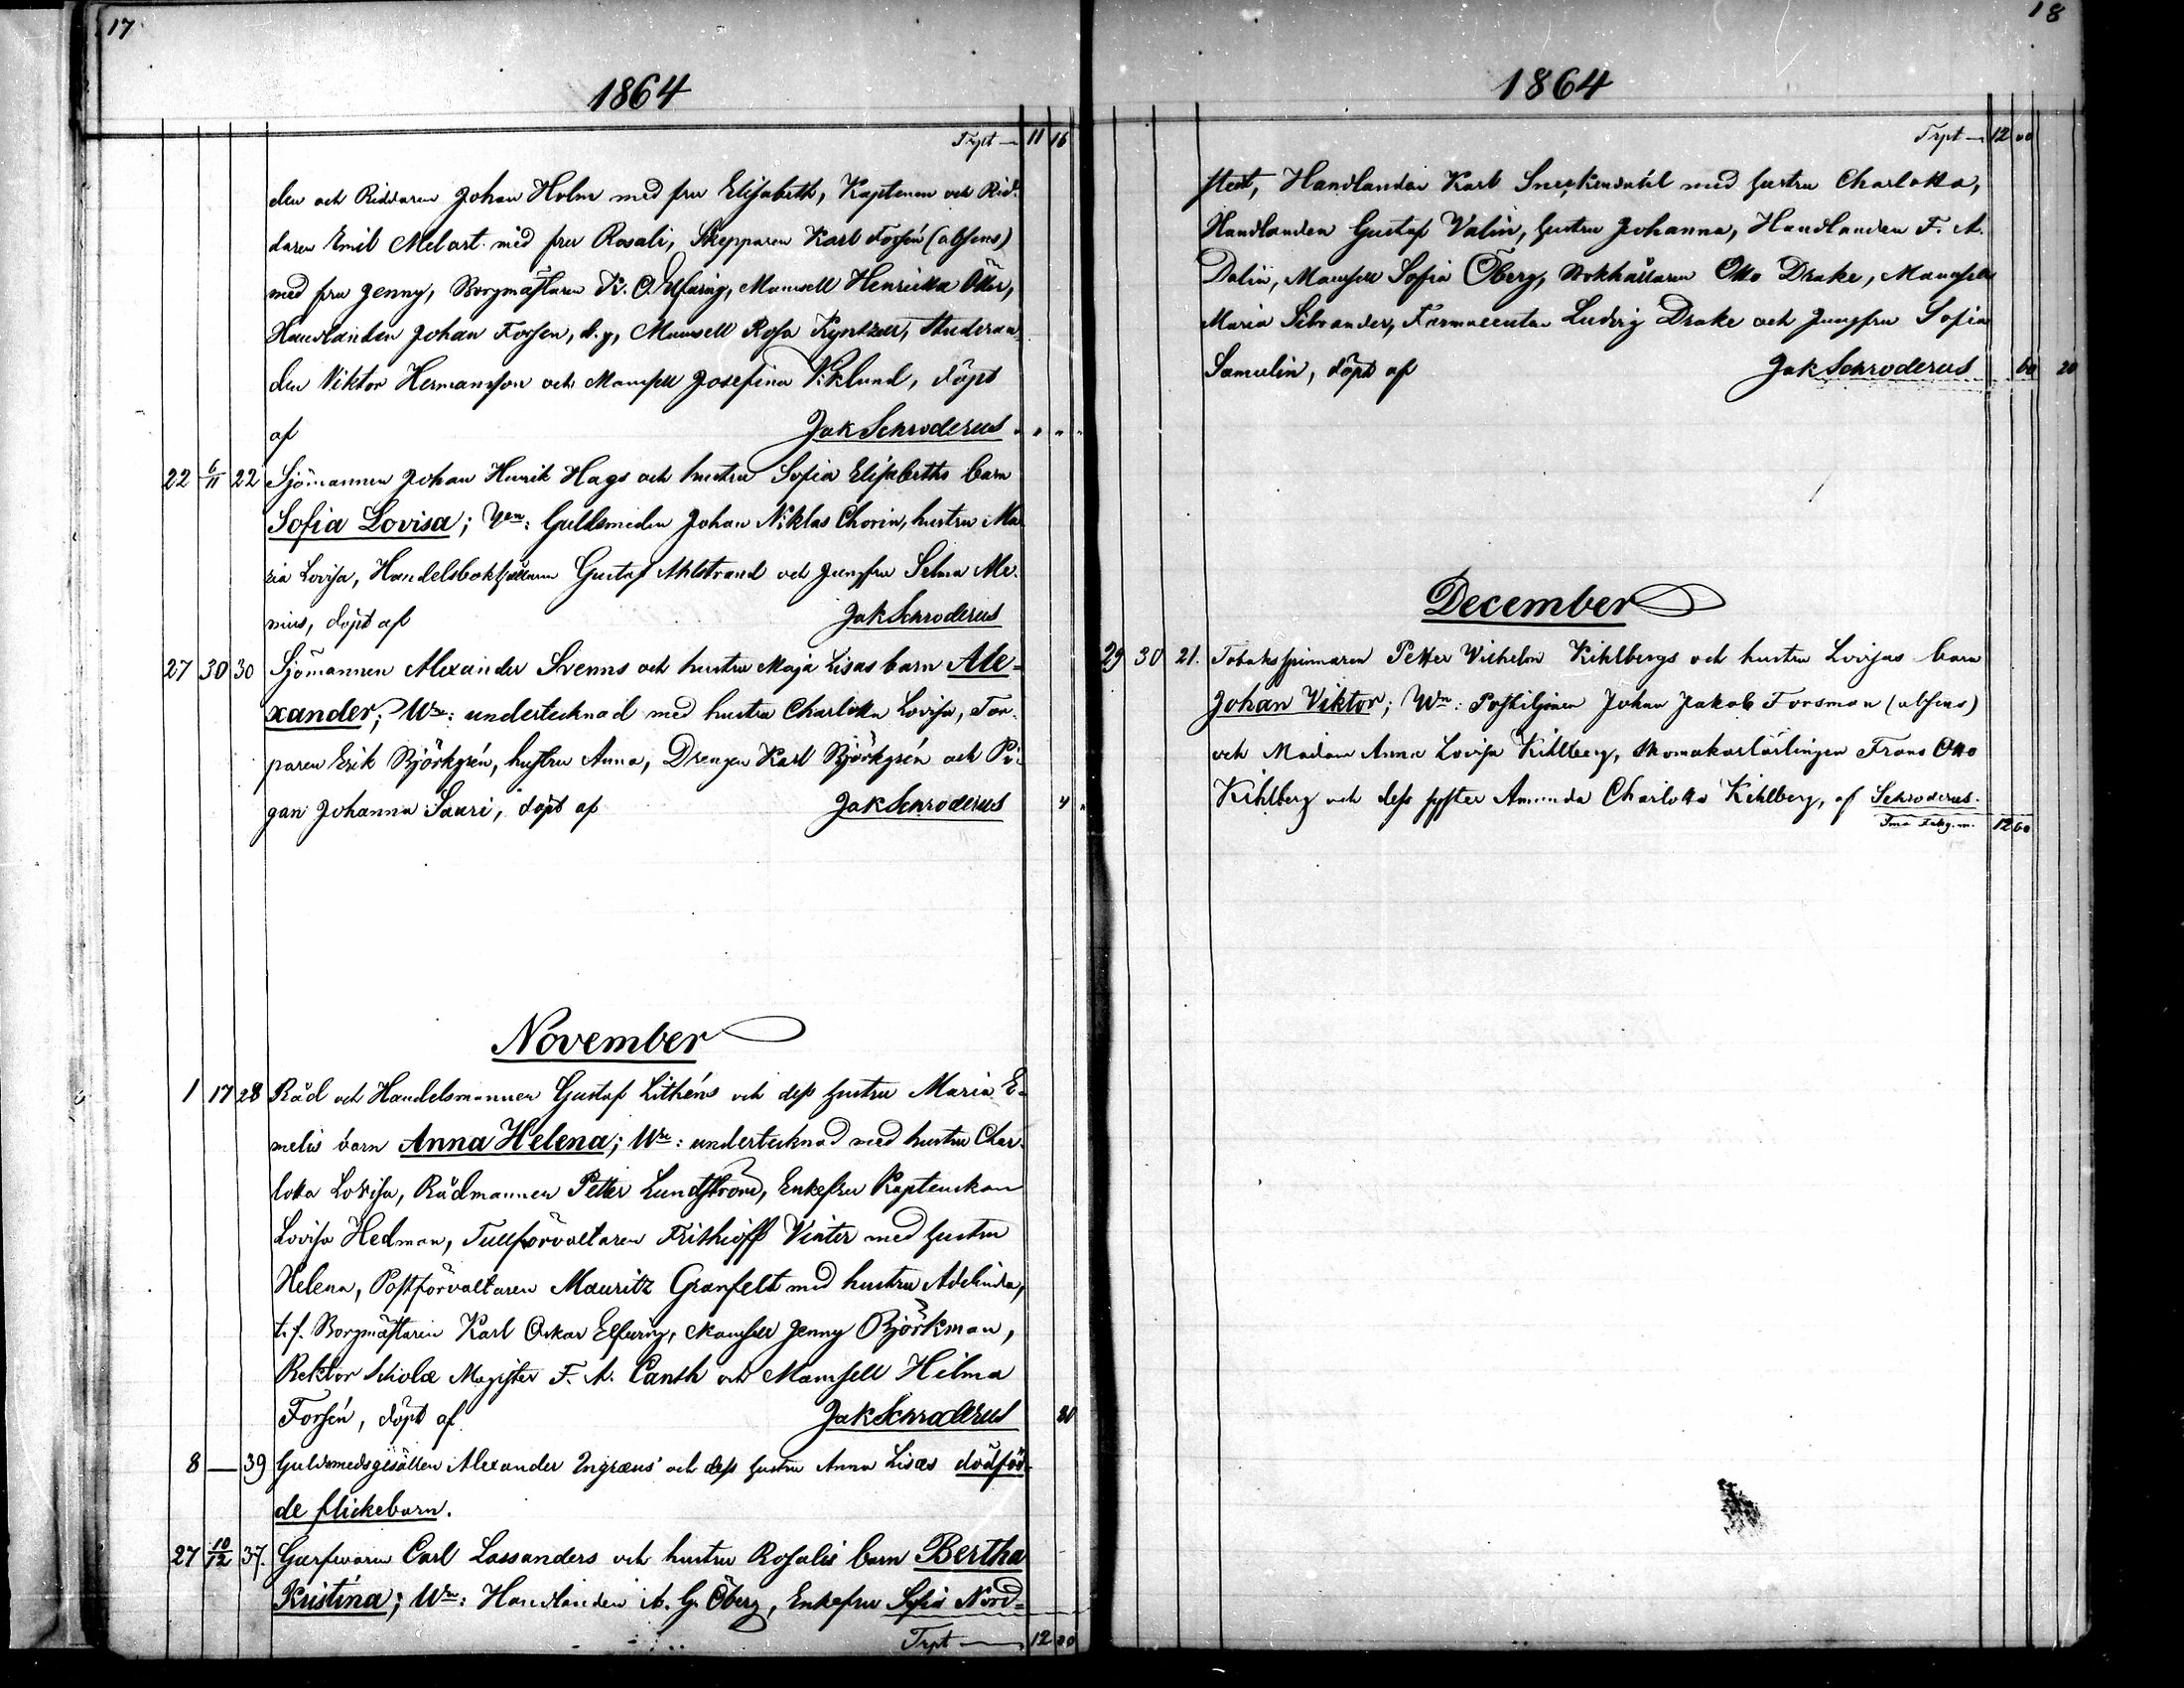 17
1864
Trpt — 11 16
den och Riddaren Johan Holm med fru Elisabeth, Kaptenen och Rid-
daren Emil Melart med fru Rosali, Skepparen Karl Forsén (absens)
med fru Jenny, Borgmästaren K. O. Elfving, Mamsell Henrietta
Handlanden Johan Forsen, d. y, Mamsell Rosa Kyntzell, Studeran-
den Viktor Hermansson och Mamsell Josefina Viklund, döpt
af Jak Schroderus
22 6/11 22 Sjömannen Johan Henrik Hags och hustru Sofia Elisabeths barn
Sofia Lovisa; Wn: Guldsmeden Johan Niklas Chorin, hustru Ma-
ria Lovisa, Handelsbokhållaren Gustaf Ahlstrand och Jungfru Selma Ale-
nius, döpt af Jak Schroderus
27 30 30 Sjömannen Alexander Svenns och hustru Maja Lisas barn Ale-
xander; Wn: undertecknad med hustru Charlotta Lovisa, Tor-
paren Erik Björkgrén, hustru Anna, Drengen Karl Björkgrén och Pi-
gan Johanna Sauri, döpt af Jak Schroderus 4
November
1 17 28 Råd och Handelsmannen Gustaf Lithéns och dess hustru Maria E-
melis barn Anna Helena; Wn: undertecknad med hustru Char-
lotta Lovisa, Rådmannen Petter Lundström, Enkefru Kaptenskan
Lovisa Hedman, Tullförvaltaren Frithioff Vinter med hustru
Helena, Postförvaltaren Mauritz Granfelt med hustru Adelinda,
t. f. Borgmästaren Karl Oskar Elfving, Mamsell Jenny Björkman,
Rektor Scholæ Magister F. A. Canth och Mamsell Hilma
Forsén, döpt af Jak Schroderus 80
8 — 39 Guldsmedsgesällen Alexander Ingræus och dess hustru Anna Lisas dödföd-
de flickebarn.
27 10/12 37. Garfvaren Carl Lassanders och hustru Rosalis barn Bertha
Kristina; Wn: Handlanden A. G. Öberg, Enkefru Sofia Nord-
Trpt — 12 00
18
1864
Trpt — 12 00
stedt, Handlanden Karl Sneckendahl med hustru Charlotta,
Handlanden Gustaf Valin, hustru Johanna, Handlanden F. A.
Dalin, Mamsell Sofia Öberg, Bokhållaren Otto Drake, Mamsell
Maria Silvander, Farmaceuten Ludvig Drake och Jungfru Sofia
Samelin, döpt af Jak Schroderus 60 20
December
29 30 21. Tobaksspinnaren Petter Vilhelm Kihlbergs och hustru Lovisas barn
Johan Viktor; Wn: Postiljonen Johan Jakob Forsman (absens)
och Madam Anna Lovisa Kihlberg, Skomakarlärlingen Frans Otto
Kihlberg och dess syster Amanda Charlotta Kihlberg, af Schroderus.
12 60